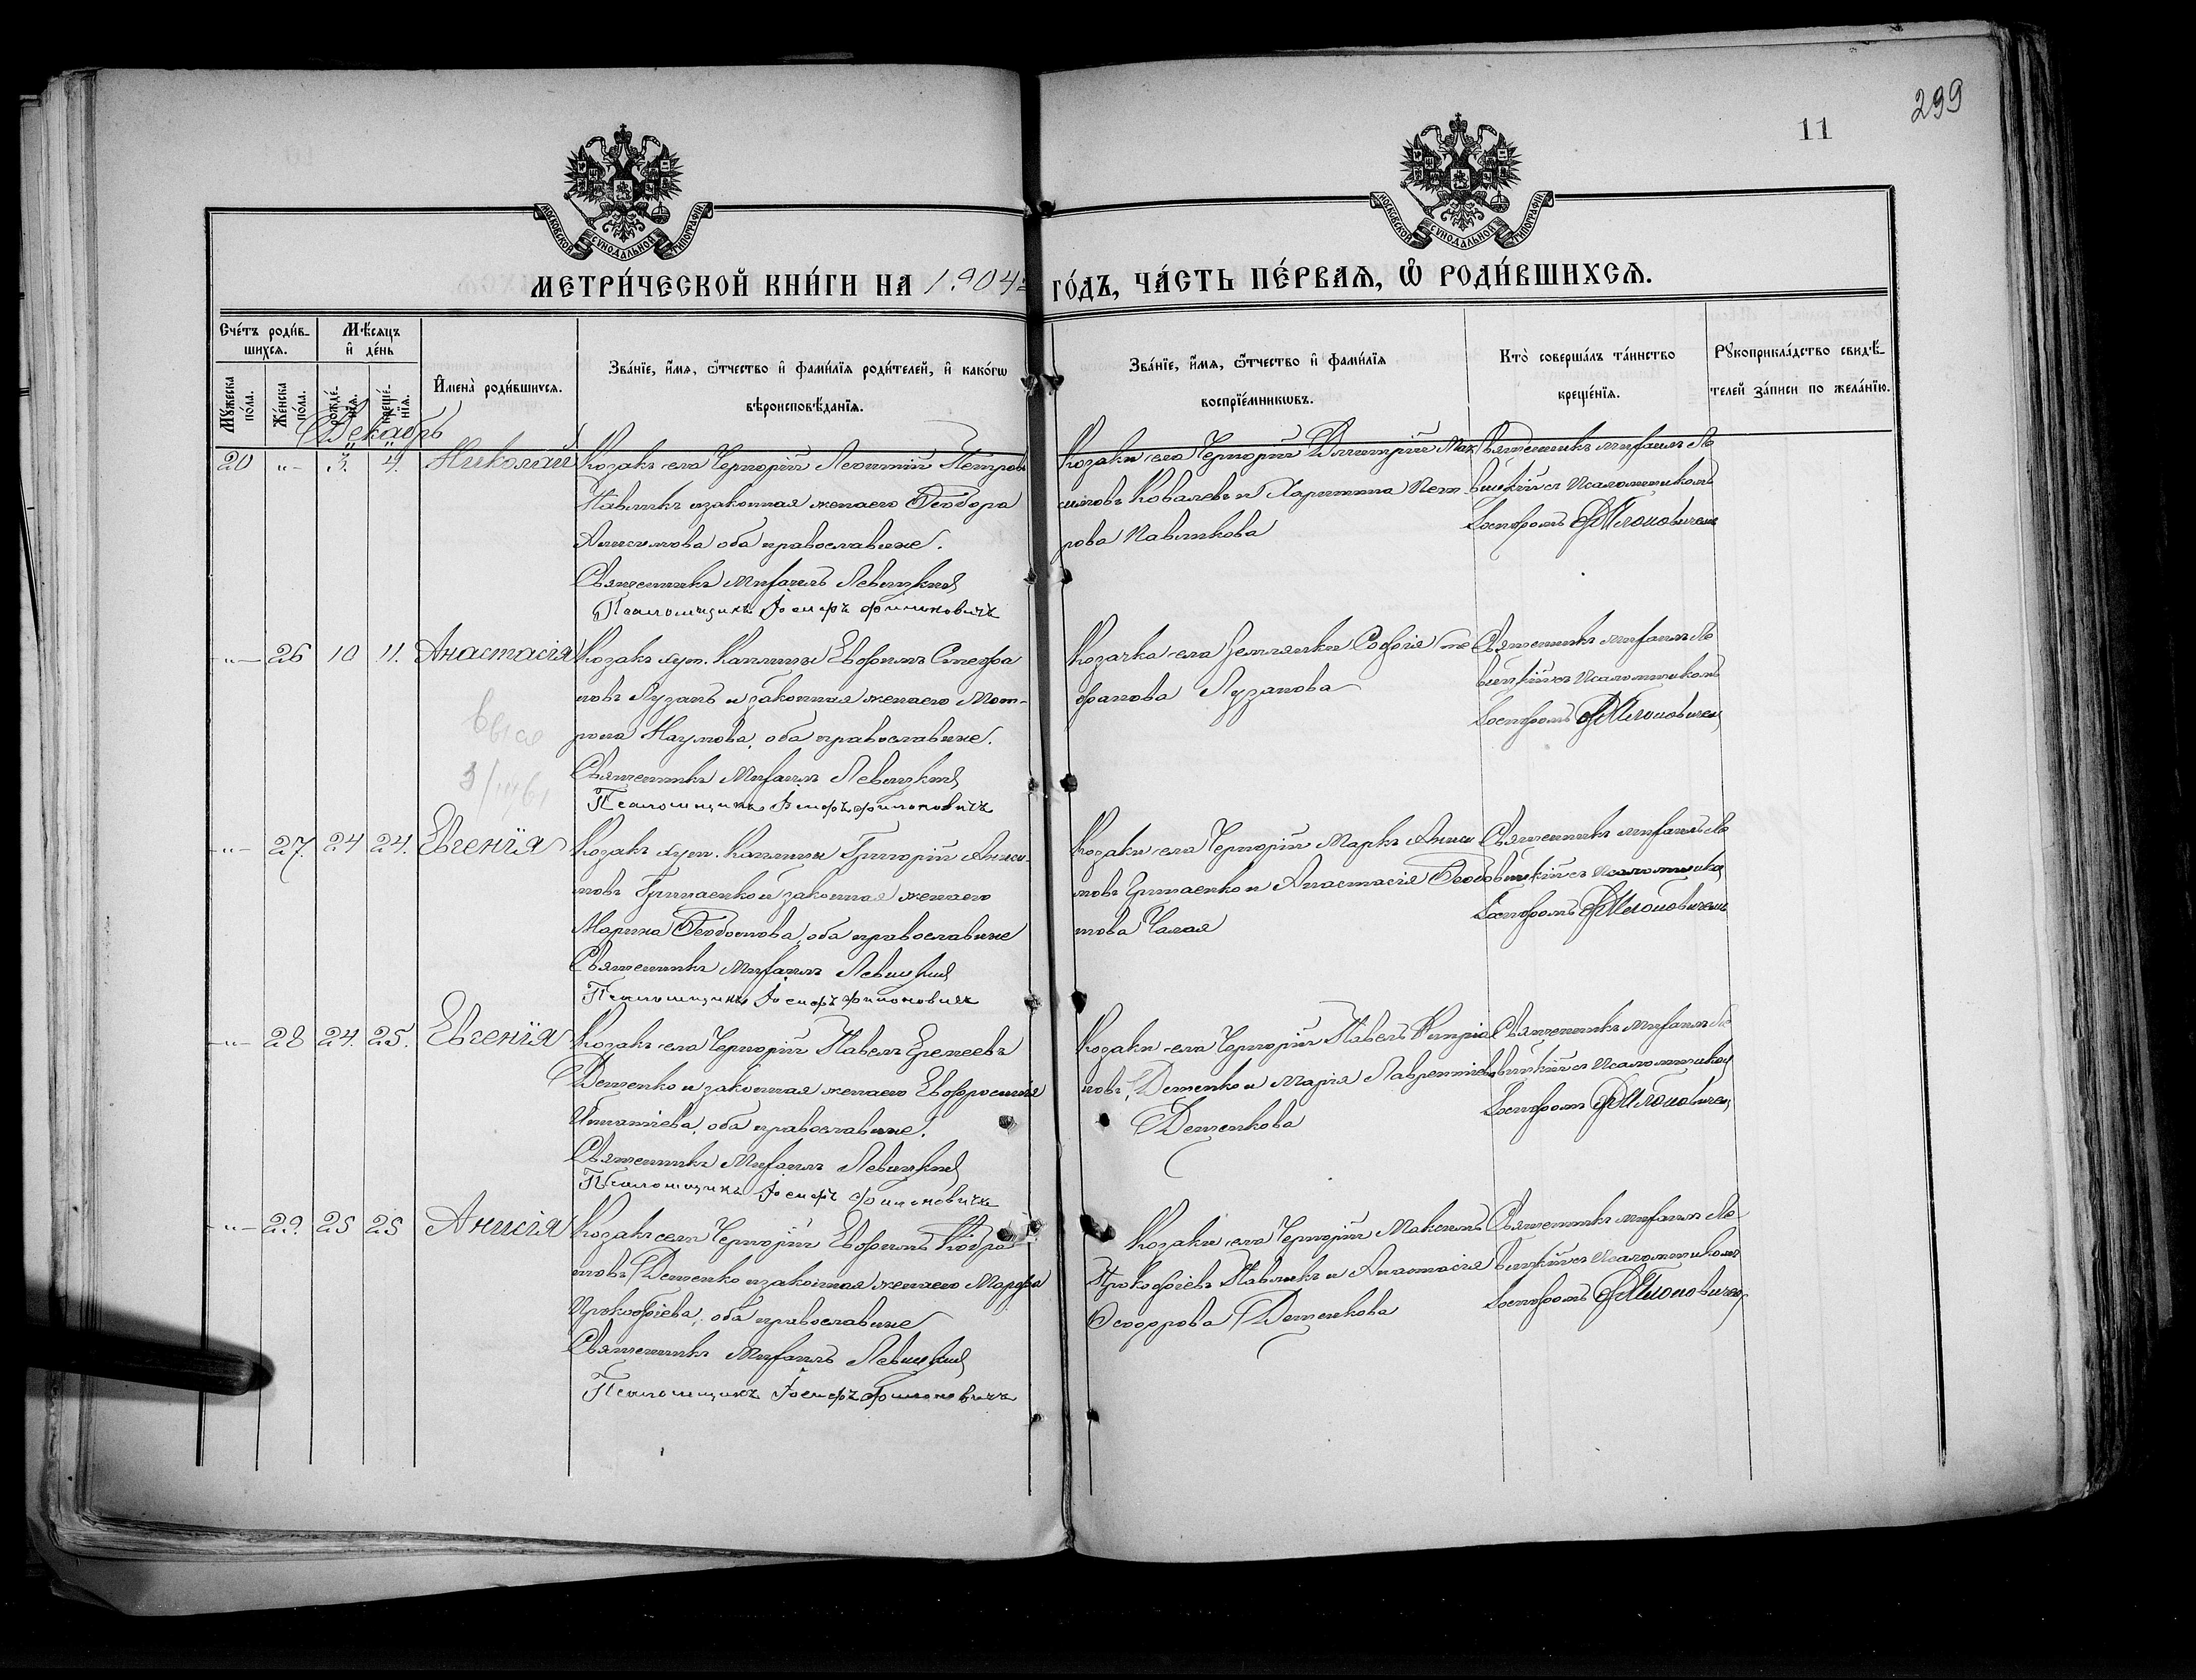 299
11
МОСКОВСКОЙ СѴНОДАЛЬНОЙ ТИПОГРАФІИ
МОСКОВСКОЙ СѴНОДАЛЬНОЙ ТИПОГРАФІИ
МЕТРИ́ЧЕСКОЙ КНИ́ГИ НА 1904 ГО́ДЪ, ЧА́СТЬ ПЕ́РВАѦ, Ѽ РОДИ́ВШИХСѦ.
Сче́тъ роди́в-
шихсѧ.
Мѣ́сѧцъ
и҆ де́нь
Мꙋ́жеска по́ла.
Же́нска по́ла.
рожде́-
нїѧ.
креще́-
нїѧ.
И҆мена̀ роди́вшихсѧ.
Зва́нїе, и҆́мѧ, ѻ҆́тчество и҆ фами́лїѧ роди́телей, и҆ како́гѡ
вѣроисповѣ́данїѧ.
Зва́нїе, и҆́мѧ, ѻ҆́тчество и҆ фами́лїѧ
воспрїе́мникѡвъ.
Кто̀ соверша́лъ та́инство
креще́нїѧ.
Рꙋкоприкла́дство свидѣ́-
телей за́писи по жела́нїю.
Декабрь
20 -"- 3. 4. Николай
Козакъ села Черторіи Леонтій Петровъ
Павликъ и законная жена его Ѳеодора
Анисимова оба православные.
Священникъ Михаилъ Левицкій
Псаломщикъ Іосифъ Филоновичъ
Козаки села Черторіи Димитрій Мак
симовъ Ковалевъ и Харитина Пет
рова Павликова
Священникъ Михаилъ Ле
вицкій съ Псаломщикомъ
Іосифомъ Филоновичемъ
-"- 26 10 11. Анастасія
Козакъ хут. Каплицы Евфимъ Стефа
новъ Лузанъ и законная жена его Мот-
рона Наумова, оба православные.
Священникъ Михаилъ Левицкій
Псаломщикъ Іосифъ Филоновичъ
Козачка села Землянки Софія Сте
фанова Лузанова
Священникъ Михаилъ Ле
вицкій съ Псаломщикомъ
Іосифомъ Филоновичемъ
-"- 27. 24 24. Евгенія
Козакъ хут. Каплицы Григорій Аниси-
мовъ Гринаенко и законная жена его
Марина Ѳеодосіова, оба православные
Священникъ Михаилъ Левицкій
Псаломщикъ Іосифъ Филоновичъ
Козаки села Черторіи Маркъ Аниси
мовъ Гринаенко и Анастасія
Чалая
Священникъ Михаилъ Ле
вицкій съ Псаломщикомъ
Іосифомъ Филоновичемъ
-"- 28 24. 25. Евгенія
Козакъ села Черторіи Павелъ Еремеевъ
Деменко и законная жена его Евфросинія
Игнатіева, оба православные.
Священникъ Михаилъ Левицкій
Псаломщикъ Іосифъ Филоновичъ
Козаки села Черторіи Павелъ Кипріа
новъ Деменко и Марія Лаврентіева
Деменкова
Священникъ Михаилъ Ле
вицкій съ Псаломщикомъ
Іосифомъ Филоновичемъ
-"- 29. 25 25 Анисія
Козакъ села Черторіи Евфимъ Кодра
товъ Деменко и законная жена его Марфа
Прокофіева, оба православные
Священникъ Михаилъ Левицкій
Псаломщикъ Іосифъ Филоновичъ
Козаки села Черторіи Максимъ
Прокофіевъ Павликъ и Анастасія
Ѳеодорова Деменкова
Священникъ Михаилъ Ле
вицкій съ Псаломщикомъ
Іосифомъ Филоновичемъ